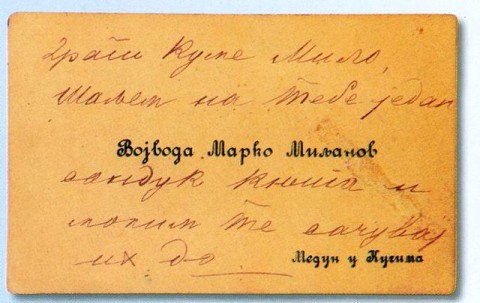 Драги Куме Мило,
шаљем на Тебе један
Војвода Марко Миљанов
сандук књига и
молим те сачувај
их до
Медун у Кучима